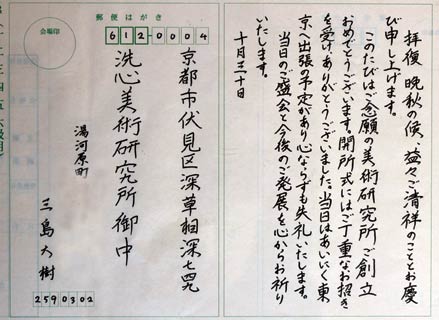 拝復 晩秋の候、益々ご清祥のこととお慶
び申し上げます。
このたびはご念願の美術研究所ご創立
おめでとうございます。開所式にはご丁重なお招き
を受けありがとうございました。当日はあいにく東
京へ出張の予定があり心ならずも失礼いたします。
当日のご盛会と今後のご発展を心からお祈り
いたします。
十月三十日
郵便はがき
会場印
612-0004
京都市伏見区深草相深七四九
洗心美術研究所御中
湯河原町
三島大樹
2590302